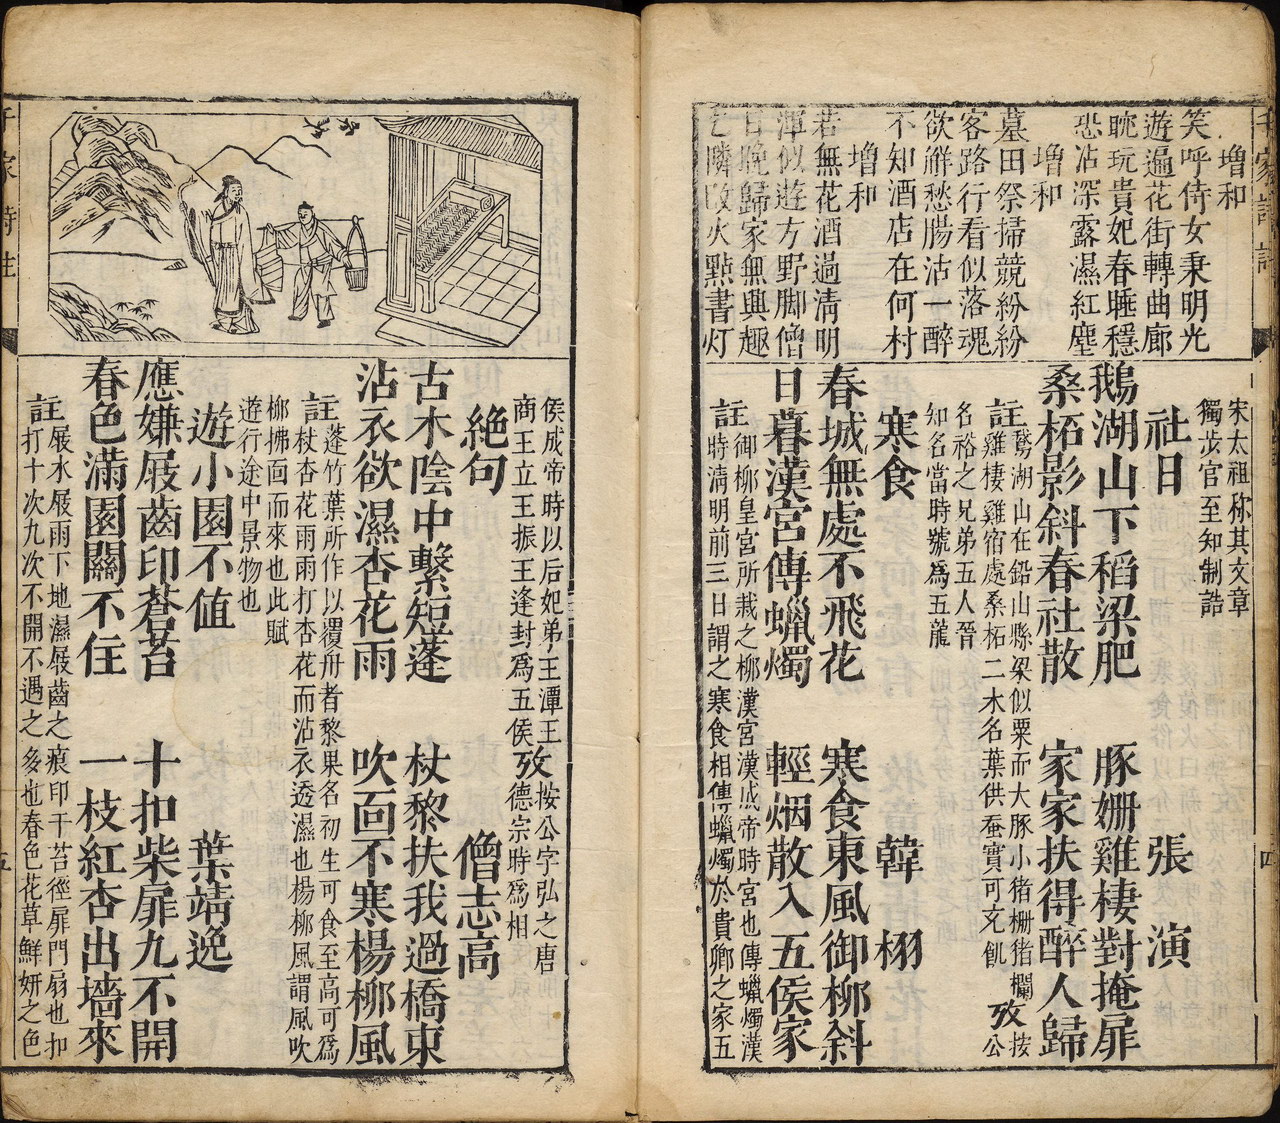 千家詩註
增和
笑呼侍女秉明光
遊遍花街轉曲廊
眈玩貴妃春睡穩
恐沾深露濕紅塵
增和
墓田祭掃競紛紛
客路行看似落魂
欲解愁腸沽一醉
不知酒店在何村
增和
若無花酒過清明
渾似遊方野脚僧
日晚歸家無興趣
乞隣改火點書灯
四
宋太祖称其文章
獨步官至知制誥
社日 張演
鵝湖山下稻梁肥 豚柵雞棲對掩扉
桑柘影斜春社散 家家扶得醉人歸
註鵞湖山在鉛山縣梁似粟而大豚小猪柵猪欄
雞棲雞宿處桑柘二木名葉供蚕實可充飢 攷按公
名裕之兄弟五人晉
知名當時號為五龍
寒食 韓栩
春城無處不飛花 寒食東風御柳斜
日暮漢宮傳蠟燭 輕烟散入五侯家
註御柳皇宮所栽之柳漢宮漢成帝時宮也傳蠟燭漢
時清明前三日謂之寒食相傳蠟燭於貴卿之家五
侯成帝時以后妃弟王潭王
商王立王振王逢封為五侯 攷按公字弘之唐
德宗時為相
絶句 僧志高
古木陰中繫短蓬 杖黎扶我過橋東
沾衣欲濕杏花雨 吹面不寒楊柳風
註蓬竹葉所作以覆舟者黎果名初生可食至高可為
杖杏花雨雨打杏花而沾衣透濕也楊柳風謂風吹
柳拂面而來也此賦
遊行途中景物也
遊小園不值 葉靖逸
應嫌屐齒印蒼苔 十扣柴扉九不開
春色滿園關不住 一枝紅杏出墻來
註屐水屐雨下地濕屐齒之痕印干苔徑扉門扇也扣
打十次九次不開不遇之多也春色花草鮮妍之色
千家詩註
五